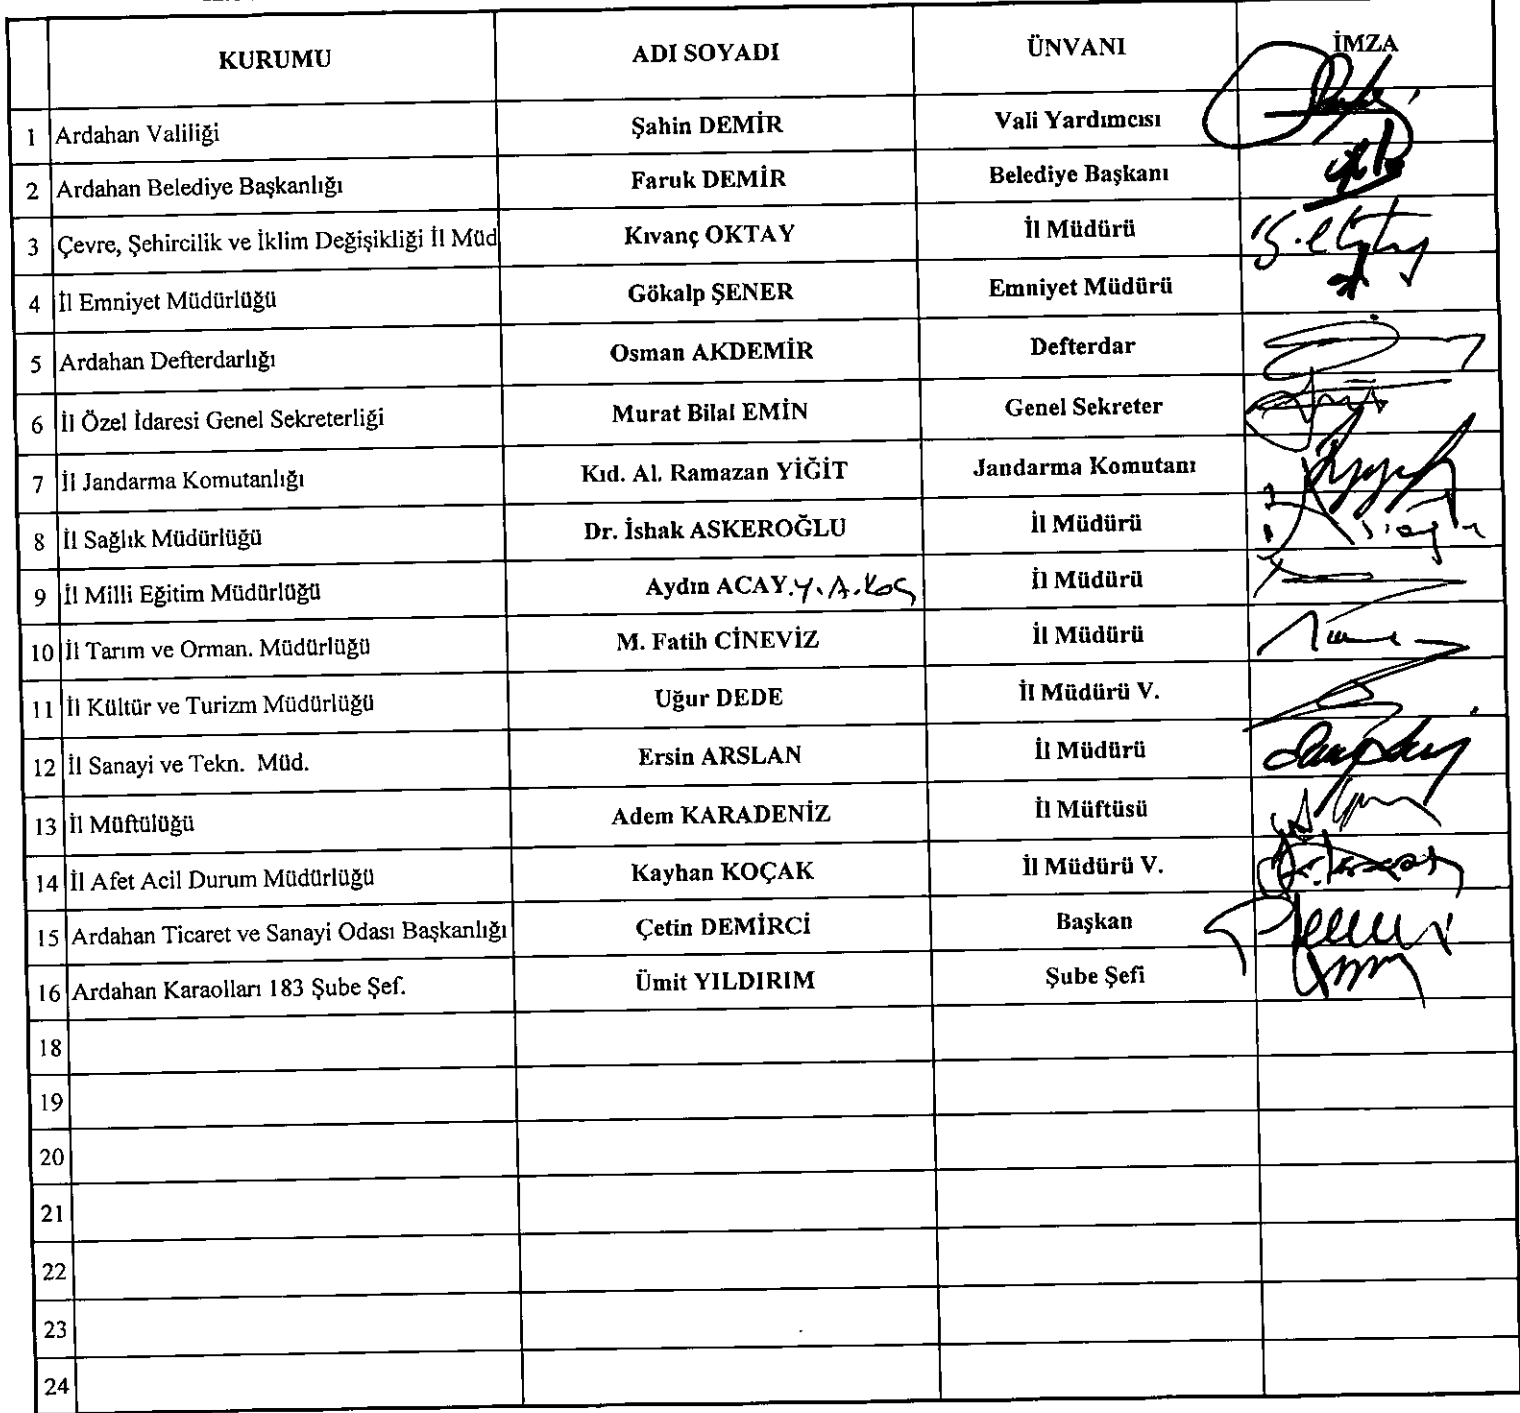 KURUMU ADI SOYADI ÜNVANI İMZA
1 Ardahan Valiliği Şahin DEMİR Vali Yardımcısı
2 Ardahan Belediye Başkanlığı Faruk DEMİR Belediye Başkanı
3 Çevre, Şehircilik ve İklim Değişikliği İl Müd Kıvanç OKTAY İl Müdürü
4 İl Emniyet Müdürlüğü Gökalp ŞENER Emniyet Müdürü
5 Ardahan Defterdarlığı Osman AKDEMİR Defterdar
6 İl Özel İdaresi Genel Sekreterliği Murat Bilal EMİN Genel Sekreter
7 İl Jandarma Komutanlığı Kıd. Al. Ramazan YİĞİT Jandarma Komutanı
8 İl Sağlık Müdürlüğü Dr. İshak ASKEROĞLU İl Müdürü
9 İl Milli Eğitim Müdürlüğü Aydın ACAY.Y.A.Koç İl Müdürü
10 İl Tarım ve Orman. Müdürlüğü M. Fatih CİNEVİZ İl Müdürü
11 İl Kültür ve Turizm Müdürlüğü Uğur DEDE İl Müdürü V.
12 İl Sanayi ve Tekn. Müd. Ersin ARSLAN İl Müdürü
13 İl Müftülüğü Adem KARADENİZ İl Müftüsü
14 İl Afet Acil Durum Müdürlüğü Kayhan KOÇAK İl Müdürü V.
15 Ardahan Ticaret ve Sanayi Odası Başkanlığı Çetin DEMİRCİ Başkan
16 Ardahan Karaolları 183 Şube Şef. Ümit YILDIRIM Şube Şefi
18
19
20
21
22
23
24